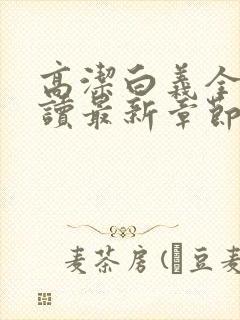 高潔白義全
讀最新章節
麦茶房(豆麦